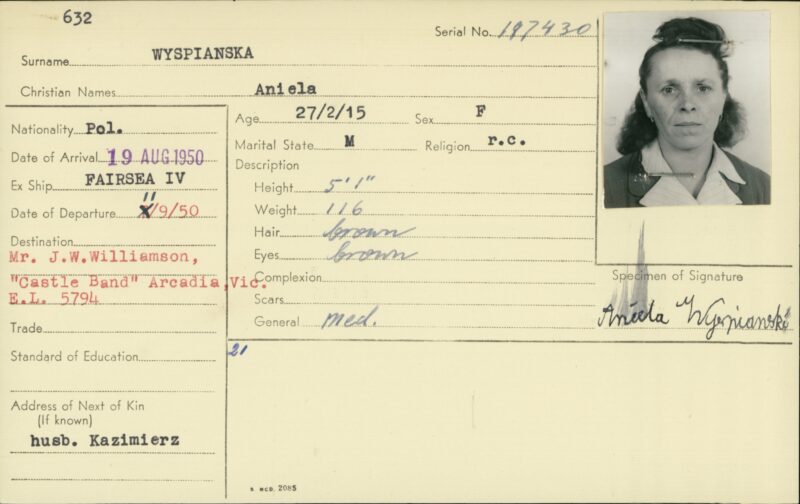 632
Serial No. 197430
Surname WYSPIANSKA
Christian Names Aniela
Nationality Pol.
Date of Arrival 19 AUG 1950
Ex Ship FAIRSEA IV
Date of Departure 11/9/50
Destination
Mr. J.W.Williamson,
"Castle Band" Arcadia,Vic.
E.L. 5794
Trade
Standard of Education
Address of Next of Kin
(If known)
husb. Kazimierz
Age 27/2/15 Sex F
Marital State M Religion r.c.
Description
Height 5'1"
Weight 116
Hair brown
Eyes brown
Complexion
Scars
General med.
21
Specimen of Signature
Aniela Wyspianska
S MCD. 2085